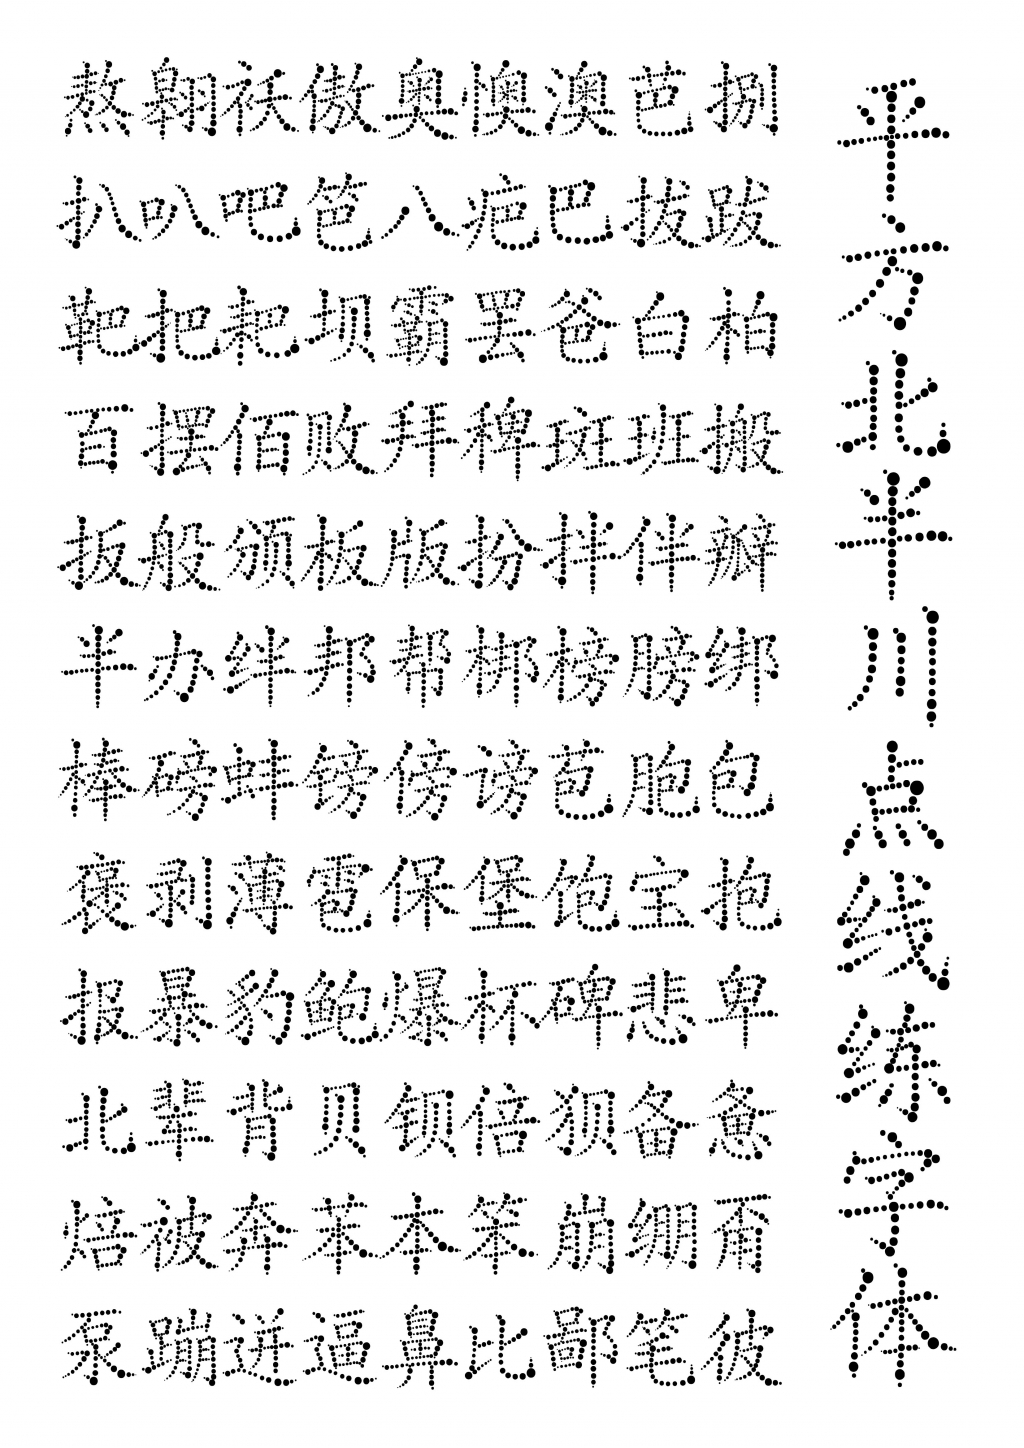 熬翱袄傲奥懊澳芭捌
扒叭吧笆八疤巴拔跋
靶把耙坝霸罢爸白柏
百摆佰败拜稗斑班搬
扳般颁板版扮拌伴瓣
半办绊邦帮梆榜膀绑
棒磅蚌镑傍谤苞胞包
褒剥薄雹保堡饱宝抱
报暴豹鲍爆杯碑悲卑
北辈背贝钡倍狈备惫
焙被奔苯本笨崩绷甭
泵蹦迸逼鼻比鄙笔彼
平方北半川点线练字体